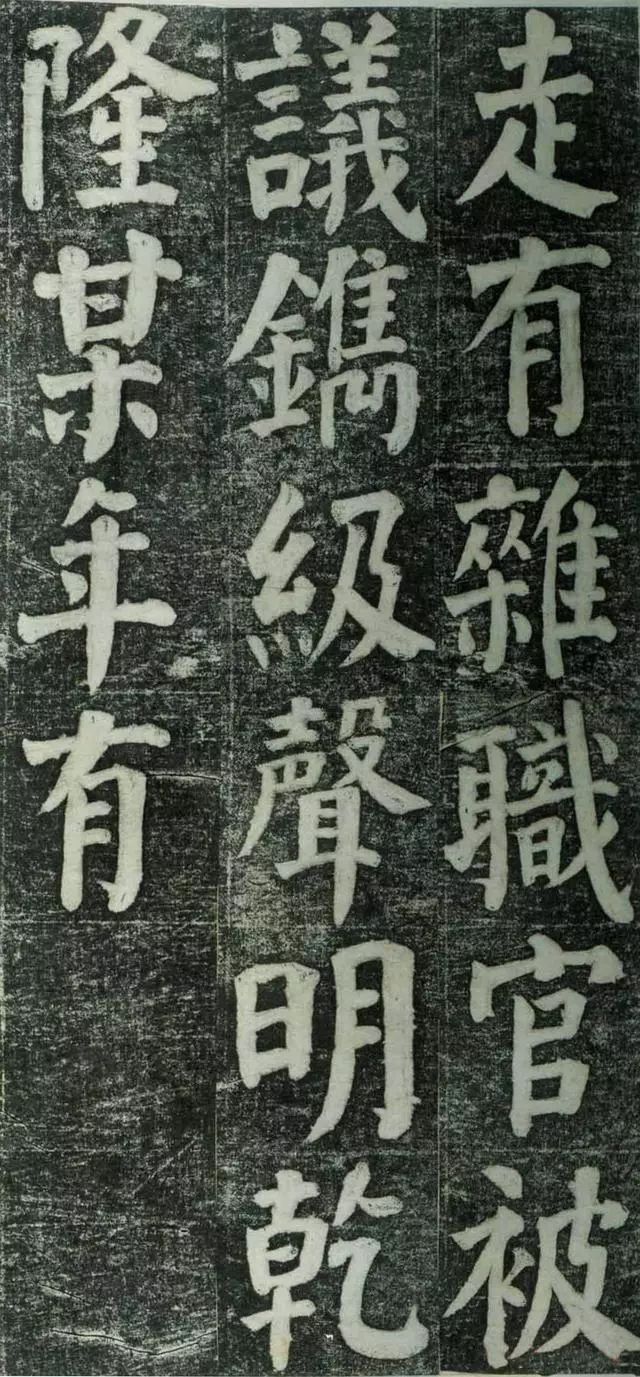 走有雜職官被
議鐫級聲明乾
隆某年有